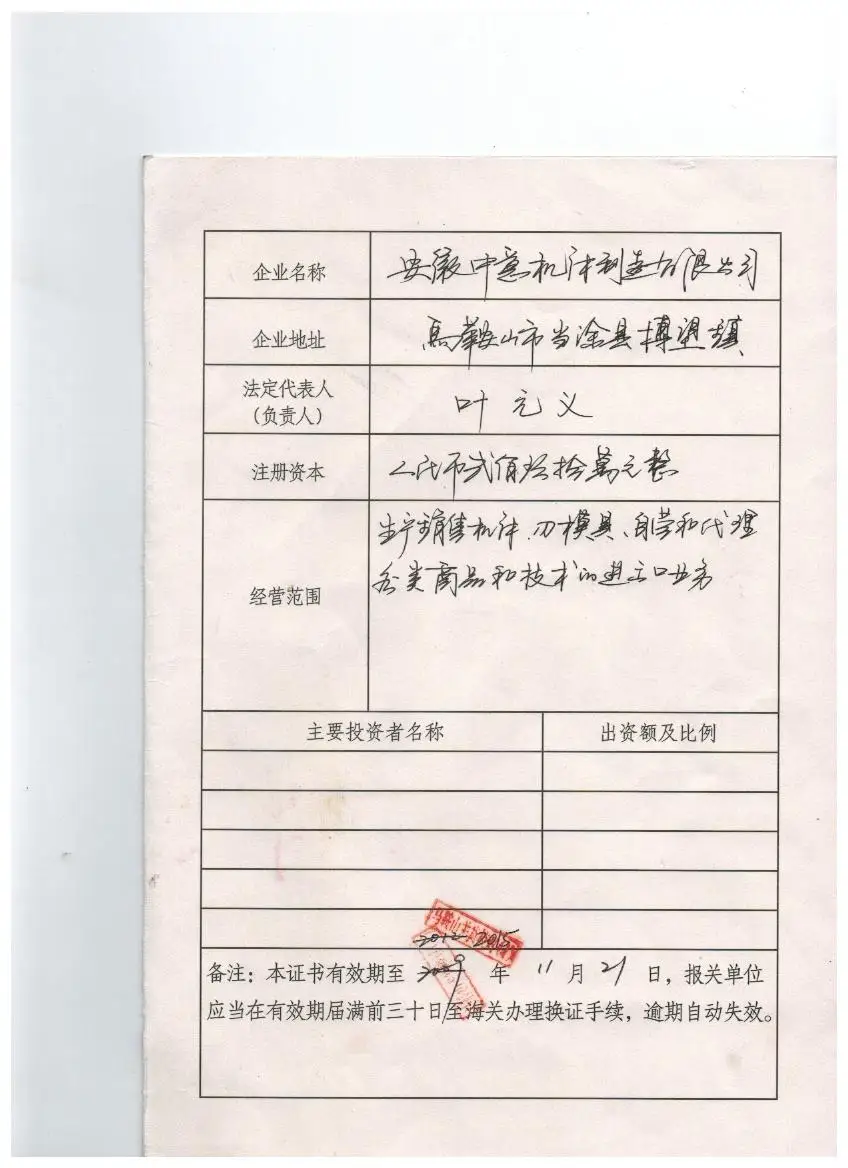 企业名称 安徽中意机床制造有限公司
企业地址 马鞍山市当涂县博望镇
法定代表人
(负责人) 叶元义
注册资本 人民币贰佰伍拾萬元整
经营范围 生产销售机床、刀模具、自营和代理
各类商品和技术的进出口业务
主要投资者名称 出资额及比例
马鞍山
2012 2015
备注：本证书有效期至 2009 年 11 月 21 日，报关单位
应当在有效期届满前三十日至海关办理换证手续，逾期自动失效。